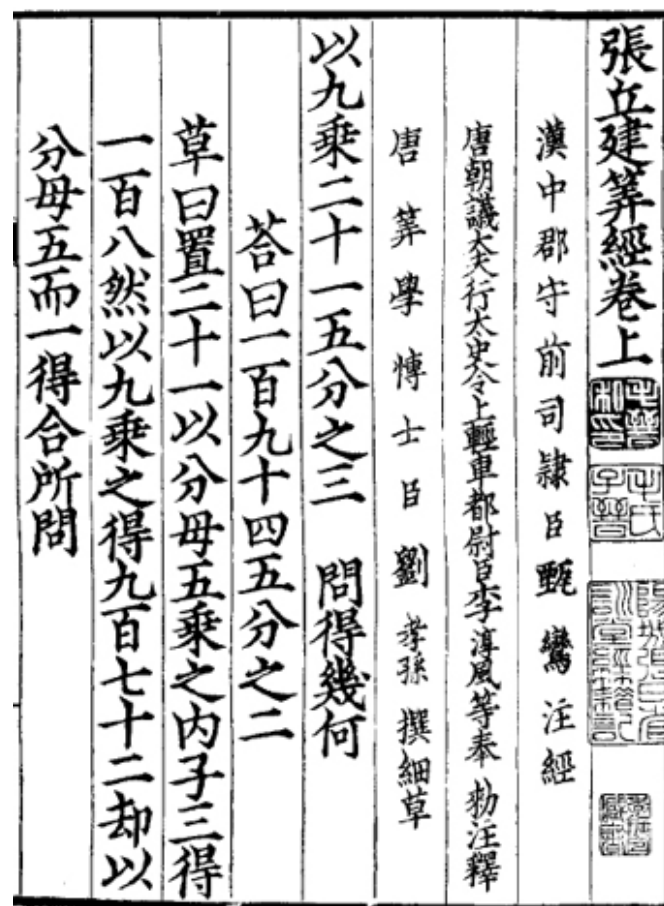 張丘建筭經卷上
漢中郡守前司隷臣甄鸞注經
唐朝議大夫行太史令上輕車都尉臣李淳風等奉勑注釋
唐筭學博士臣劉孝孫撰細草
以九乗二十一五分之三 問得幾何
荅曰一百九十四五分之二
草曰置二十一以分母五乗之内子三得
一百八然以九乗之得九百七十二却以
分母五而一得合所問